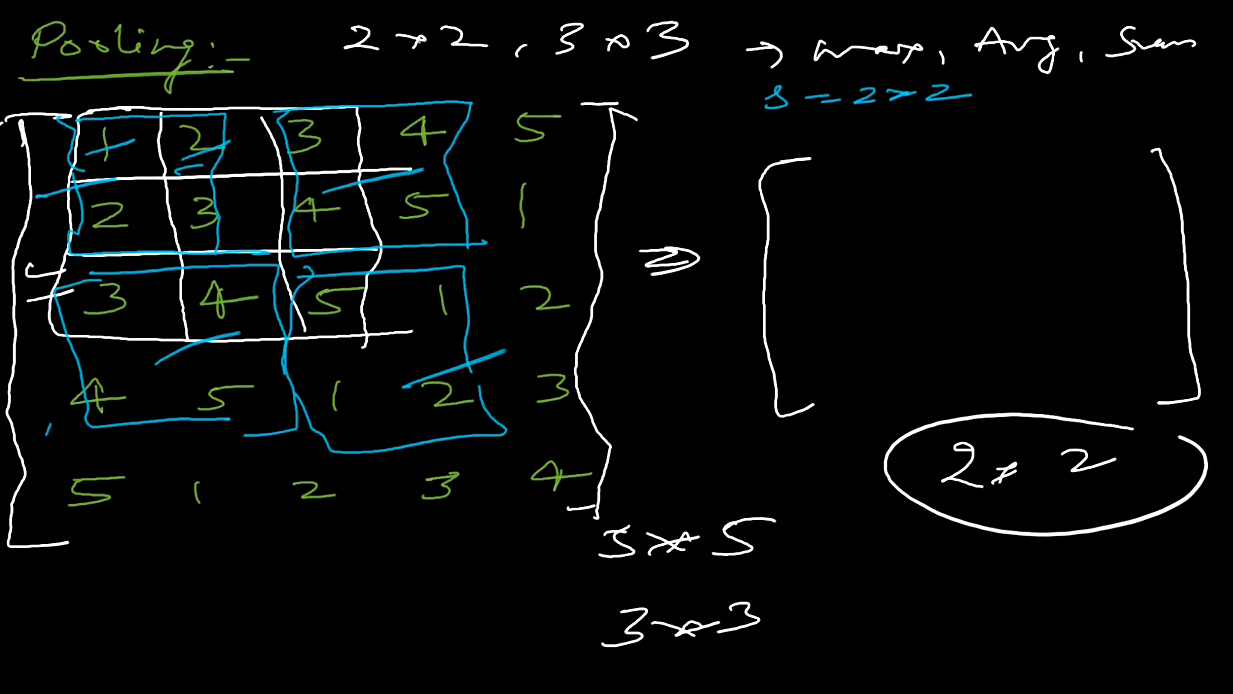 Pooling:- 2*2, 3*3 → max, Avg, Sum
s = 2*2
1 2 3 4 5
2 3 4 5 1
3 4 5 1 2
4 5 1 2 3
5 1 2 3 4
2* 2
5*5
3*3